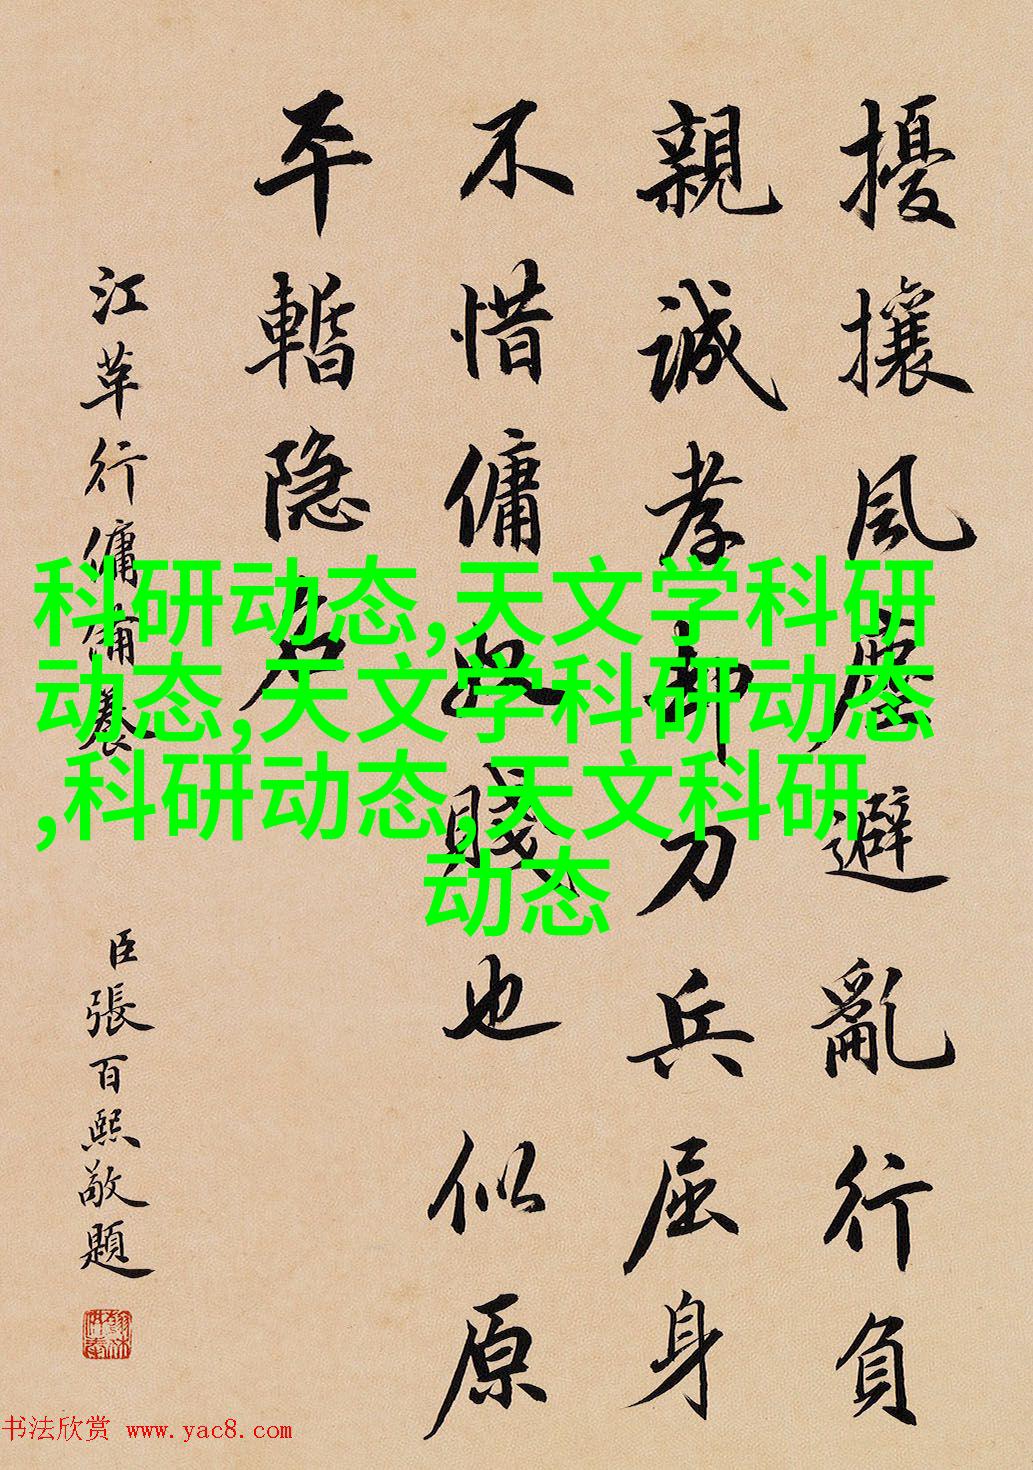 擾攘風塵避亂行負
親誠孝却刀兵屈身
不惜傭賤也似原
平暫隐名
江革行傭養
臣張百熙敬題
科研动态,天文学科研
动态,天文学科研动态
,科研动态,天文科研
动态
书法欣赏 www.yac8.com